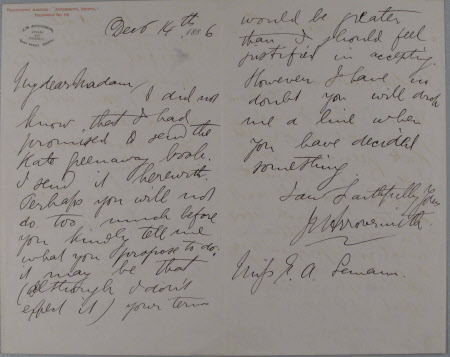 Telegraphic Address, "Arrowsmith, Bristol."
J. W. ARROWSMITH,
Quay Street, Bristol
Decr 14th 1886
My dear Madam,
I did not
know that I had
promised to send the
Kate Greenaway book.
I send it herewith.
Perhaps you will not
do too much before
you kindly tell me
what you propose to do,
it may be that
(although I don't
expect it) your terms
would be greater
than I should feel
justified in accepting.
However I have no
doubt you will drop
me a line when
you have decided
something
I am faithfully yours
JW Arrowsmith
Miss E. A. Lemann.